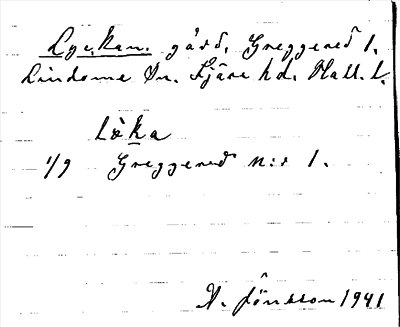 Lyckan. gård, Greggered 1.
Lindome sn. Fjäre hd. Hall. l.
Löka
1/9 Greggered n:r 1.
A. Jönsson 1941